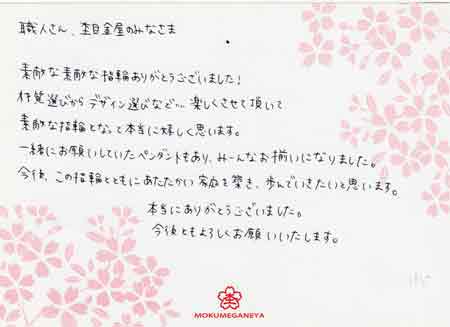 職人さん、杢目金屋のみなさま
素敵な素敵な指輪ありがとうございました!
材質選びからデザイン選びなど…楽しくさせて頂いて
素敵な指輪となって本当に嬉しく思います。
一緒にお願いしていたペンダントもあり、みーんなお揃いになりました。
今後、この指輪とともにあたたかい家庭を築き、歩んでいきたいと思います。
本当にありがとうございました。
今後ともよろしくお願いいたします。
MOKUMEGANEYA